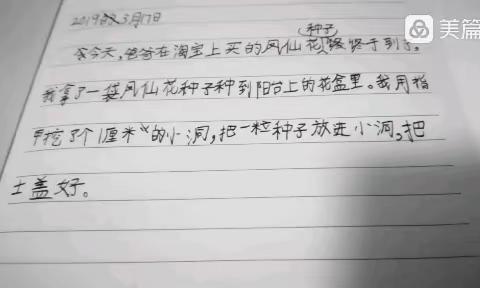 美篇
2019年3月17日
今天,爸爸在淘宝上买的凤仙花种子终于到了。
我拿了一袋凤仙花种子种到阳台上的花盆里。我用指
甲挖了个1厘米的小洞,把一粒种子放进小洞,把
土盖好。